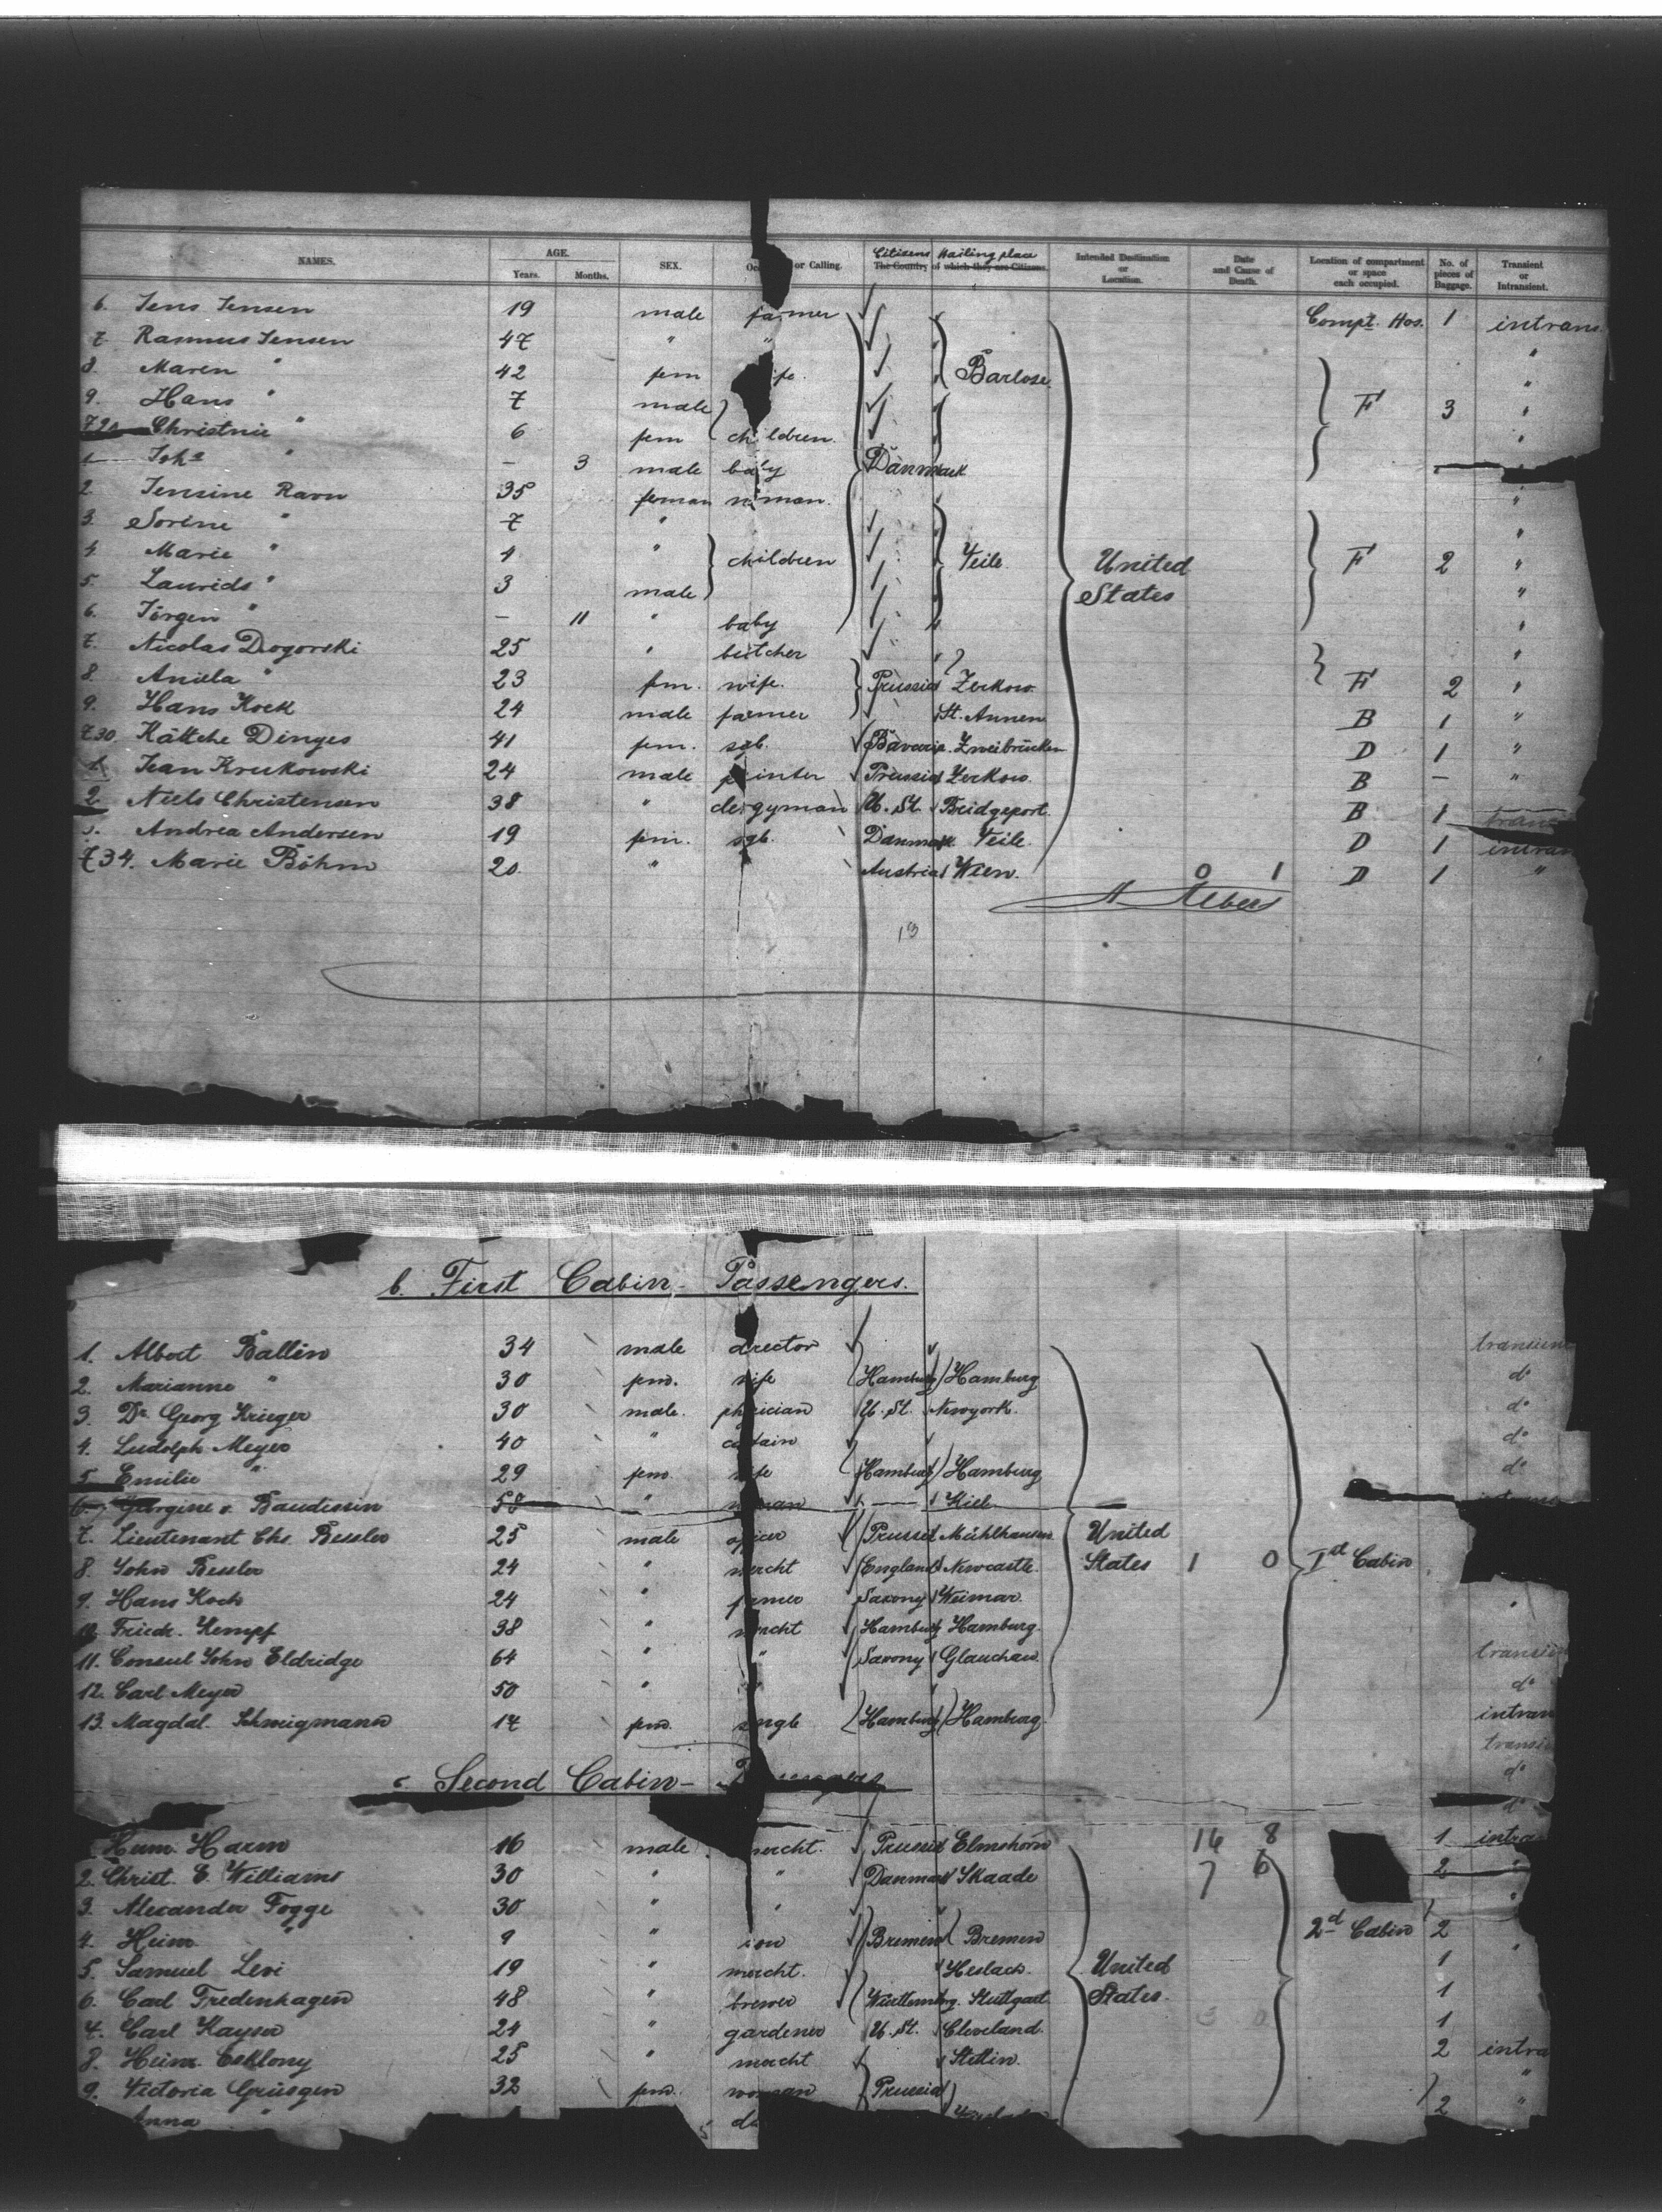 NAMES. AGE. Years. Months. SEX. or Calling. Citizens Hailing place The Country of which they are Citizens. Intended Destination or Location. Date and Cause of Death. Location of compartment or space each occupied. No. of pieces of Baggage. Transient or Intransient.
6. Jens Jensen 19 male farmer Compt. Hos. 1 intrans
7. Rasmus Jensen 47 " " "
8. Maren " 42 fem Barlose "
9. Hans " 7 male F 3 "
720 Christine " 6 fem children "
1 Joh " – 3 male baby Danmark
2. Jensine Ravn 35 woman "
3. Sorine " 7 " "
4. Marie " 4 " children Veile United F 2 "
5. Laurids " 3 male States "
6. Jörgen " – 11 " baby "
7. Nicolas Dogorski 25 " butcher "
8. Aniela " 23 fem. wife. Prussia Zerkow F 2 "
9. Hans Kock 24 male farmer St. Annen B 1 "
730. Kättche Dinges 41 fem. sgl. Bavaria. Zweibrücken D 1 "
1. Jean Krukowski 24 male Prussia Zerkow. B – "
2. Niels Christensen 38 " clergyman U. St. Bridgeport. B 1 trans
3. Andrea Andersen 19 fem. sgl. Danmark Veile. D 1 intran
734. Marie Böhm 20. " Austria Wien. 0 1 D 1 "
A Albers
13
b. First Cabin - Passengers.
1. Albert Ballin 34 male director transien
2. Marianne " 30 fem. wife Hamburg Hamburg do
3. Dr. Georg Krieger 30 male. physician U. St. Newyork. do
4. Ludolph Meyer 40 " captain do
5. Emilie " 29 fem wife Hamburg Hamburg do
6. Georgine v. Baudissin 58 " woman Kiel
7. Lieutenant Chs. Bessler 25 male officer Prussia Mühlhausen United
8. John Bessler 24 " mercht England Newcastle. States 1 0 Ist Cabin
9. Hans Koch 24 " farmer Saxony Weimar. "
10 Friedr. Kempf 38 " mercht Hamburg Hamburg.
11. Consul John Eldridge 64 " " Saxony Glauchau. transie
12. Carl Meyer 50 " do
13. Magdal. Schwigmann 17 fem. single Hamburg Hamburg. intran
transie
do
c. Second Cabin - Passengers
do
Harm 16 male mercht. Prussia Elmshorn 14 8 1 intra
2. Christ. E. Williams 30 " " Danmark Skaade 7 6 2
3. Alexander Fogge 30 " " "
4. Heinr. " 9 " son Bremen Bremen 2d Cabin 2
5. Samuel Levi 19 " mercht. Heslach. United 1 "
6. Carl Fredenhagen 48 " brewer Württembrg. Stuttgart States. 1
7. Carl Kayser 24 " gardener U. St. Cleveland. 1
8. Heinr. Esklony 25 " mercht Stettin. 2 intra
9. Victoria Grüsgen 32 fem. woman Prussia "
Anna " 2 "